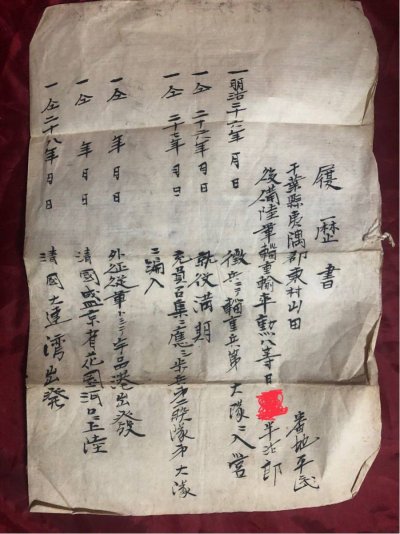 履歴書
千葉縣夷隅郡東村山田 番地平民
後備陸軍輜重輸卒勲八等 半治郎
一明治二十六年 月 日 徴兵ヨリ輜重兵第 大隊ニ入営
一仝 二十六年 月 日 就役満期
一仝 二十七年 月 日 充員召集ニ應シ歩兵第二聯隊第 大隊
ニ編入
一仝 年 月 日 外征従軍トシテ宇品港出發
一仝 年 月 日 清國盛京省花園河口上陸
一仝二十八年 月 日 清國大連湾出発